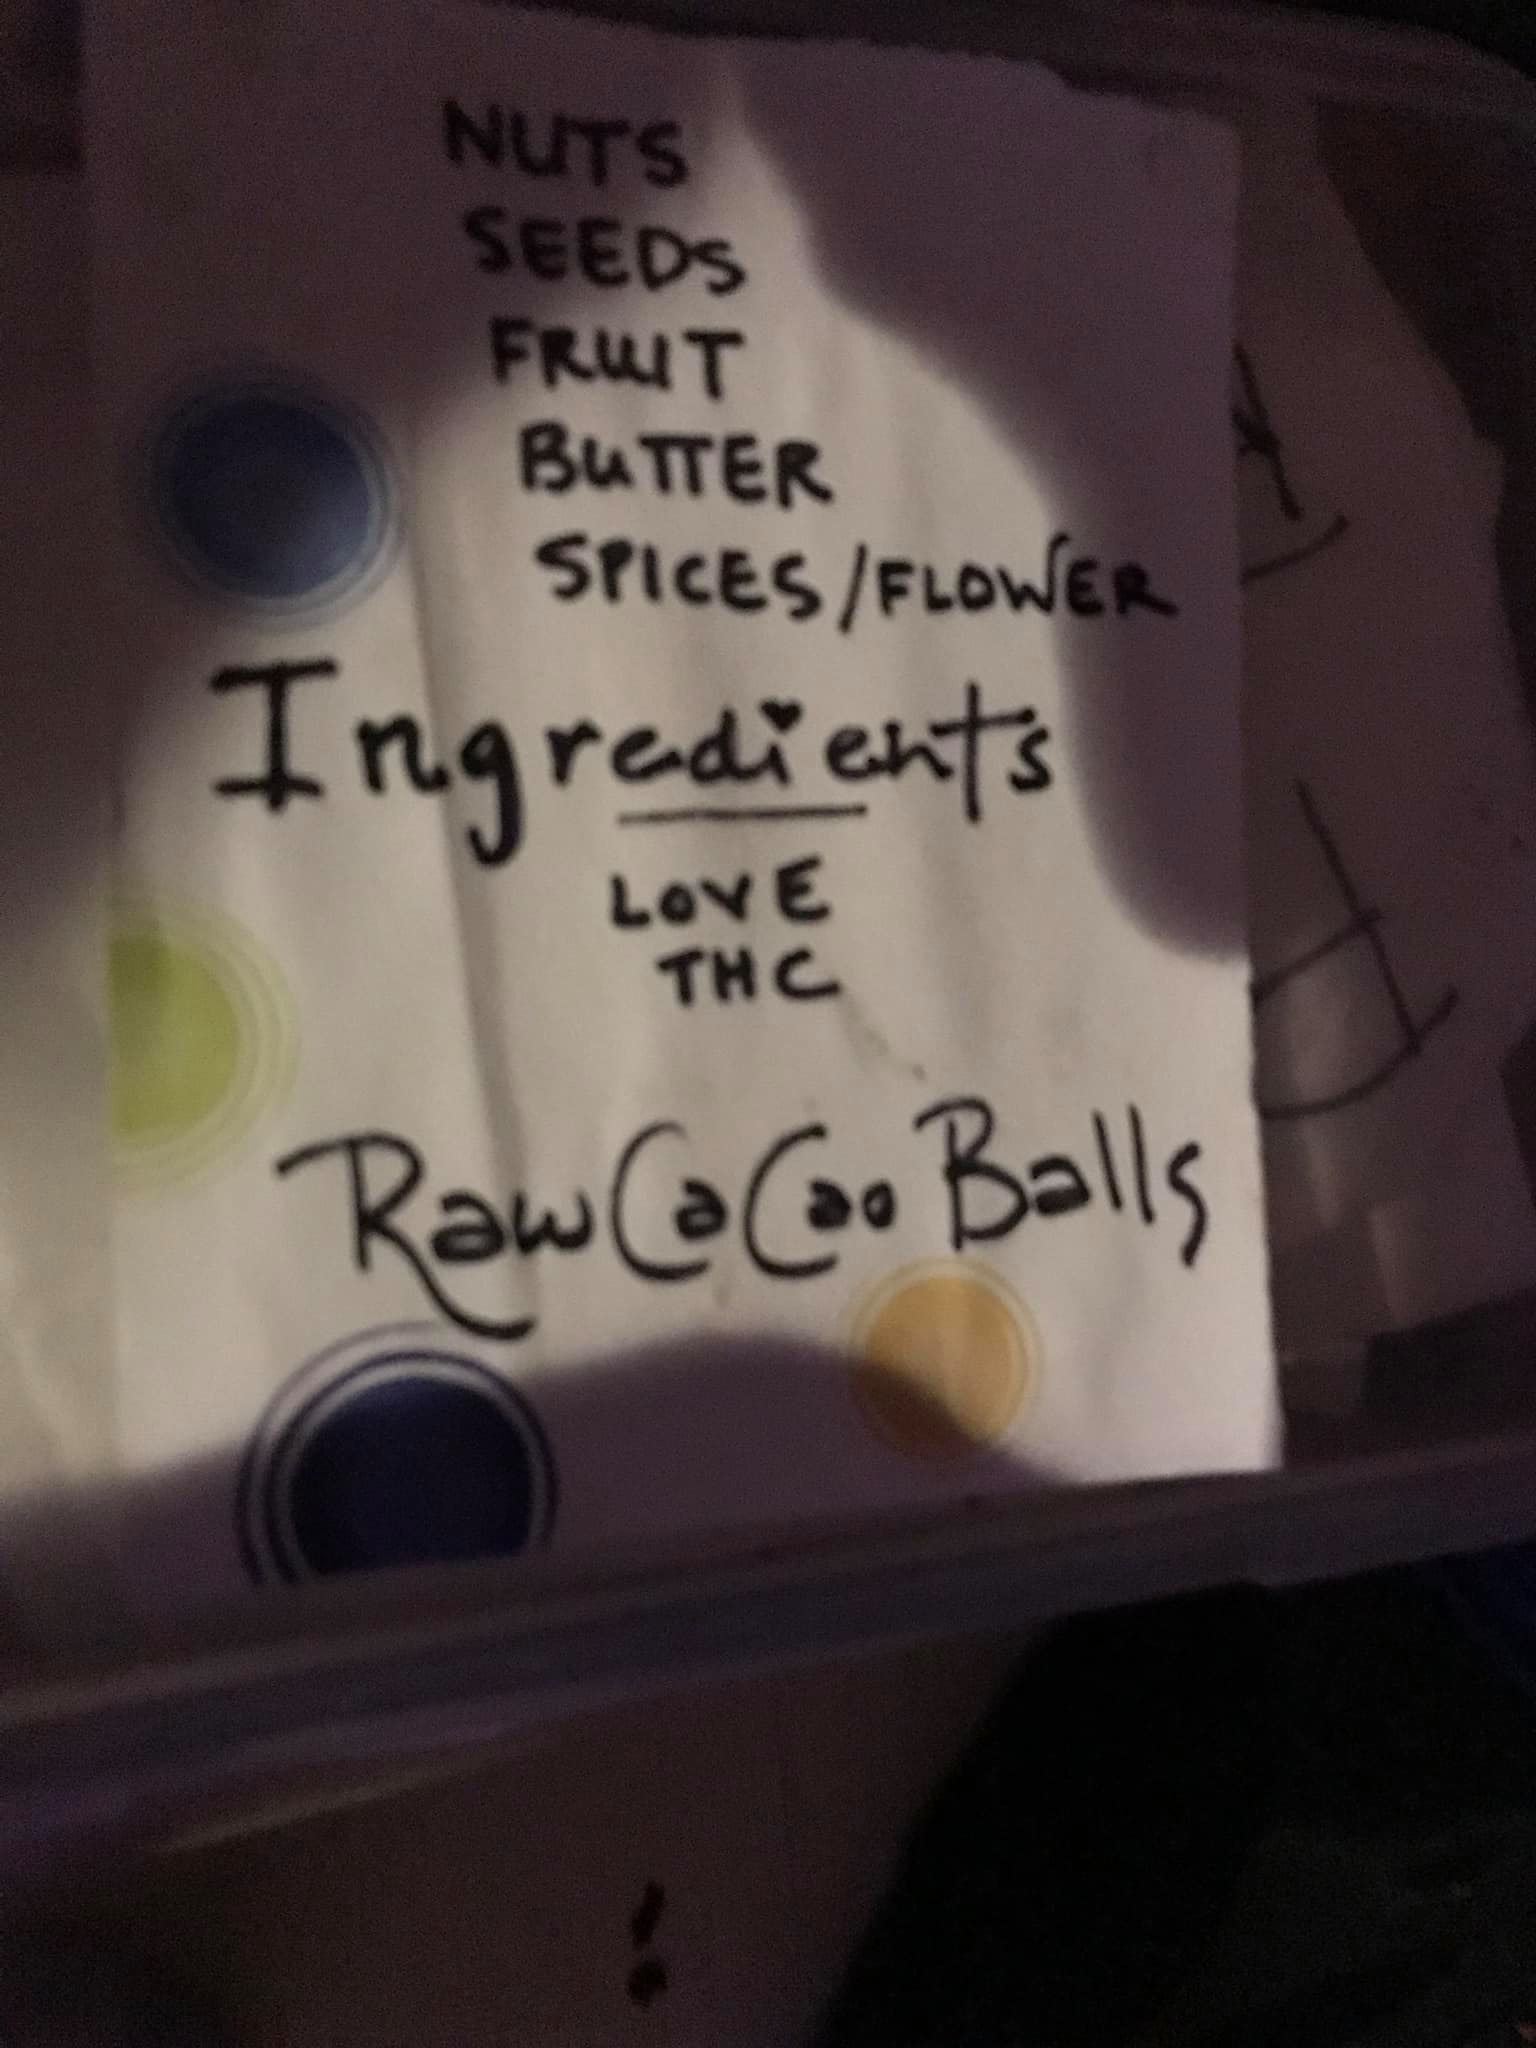 NUTS
SEEDS
FRUIT
BUTTER
SPICES/FLOWER
Ingredients
LOVE
THC
Raw CaCao Balls
!